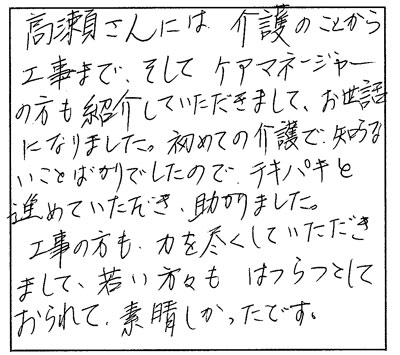 高瀬さんには 介護のことから
工事まで、そして ケアマネージャー
の方も紹介していただきまして、お世話
になりました。初めての介護で、知らな
いことばかりでしたので、テキパキと
進めていただき、助かりました。
工事の方も、力を尽くしていただき
まして、若い方々も はつらつとして
おられて、素晴しかったです。